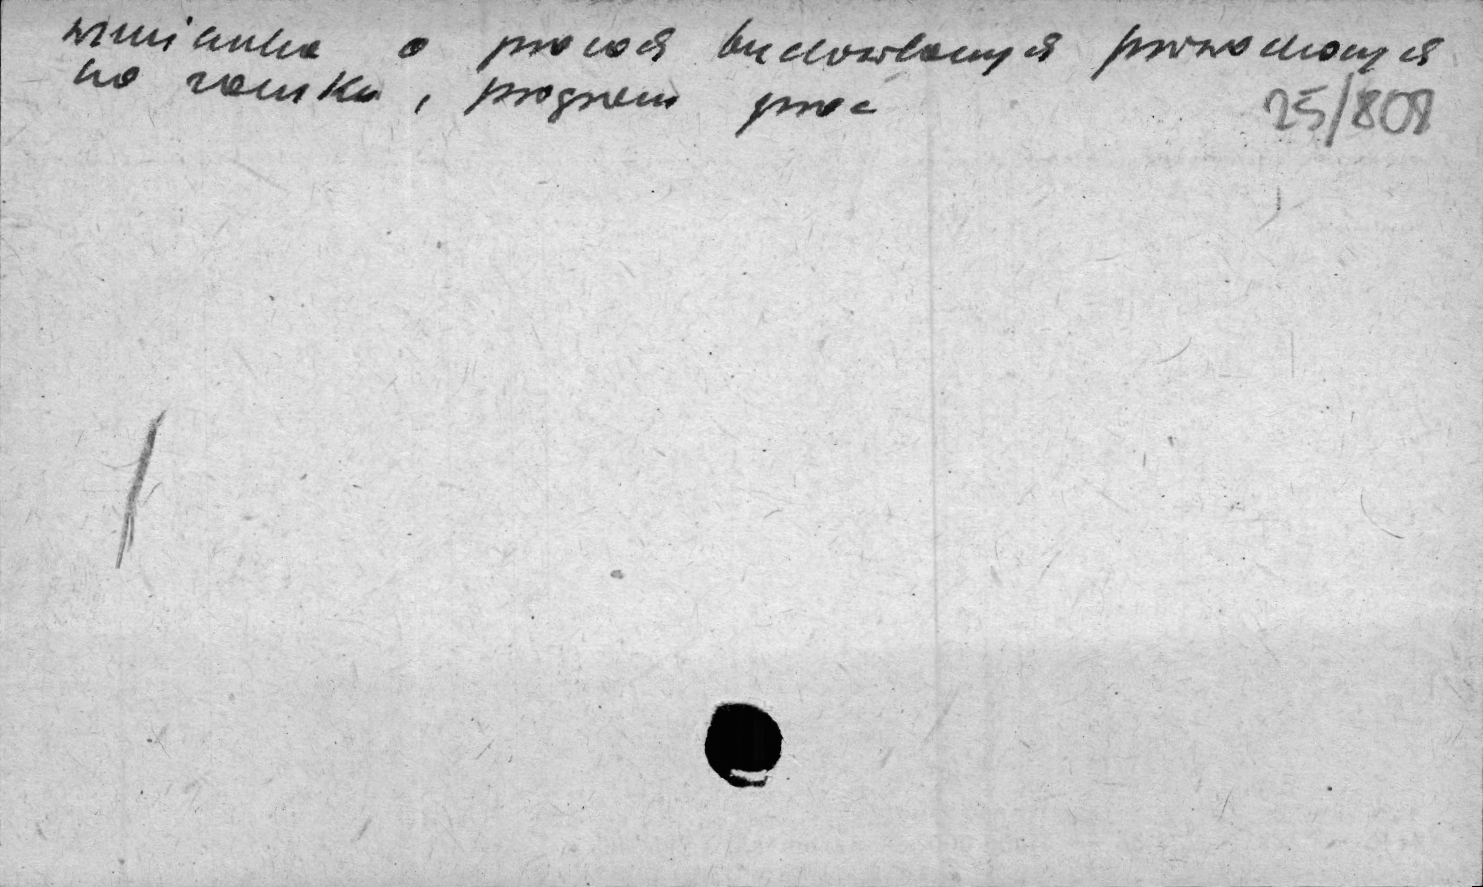 wzmianka o pracach budowlanych prowadzonych
na zamku, program prac
25/808